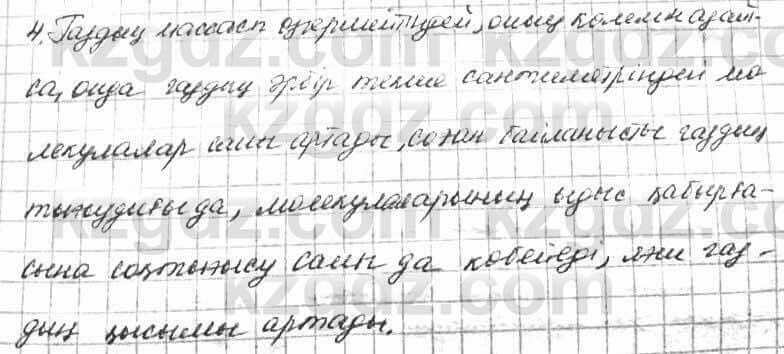 4. Газдың массасы өзгермейтіндей, оның көлемін азайт-
са, онда газдың әрбір текше сантиметріндей мо
лекулалар саны артады, сонан байланысты газдың
тығыздығы да, молекулаларының ыдыс қабырға-
сына соқтығысу саны да көбейеді, яғни газ-
дың қысымы артады.